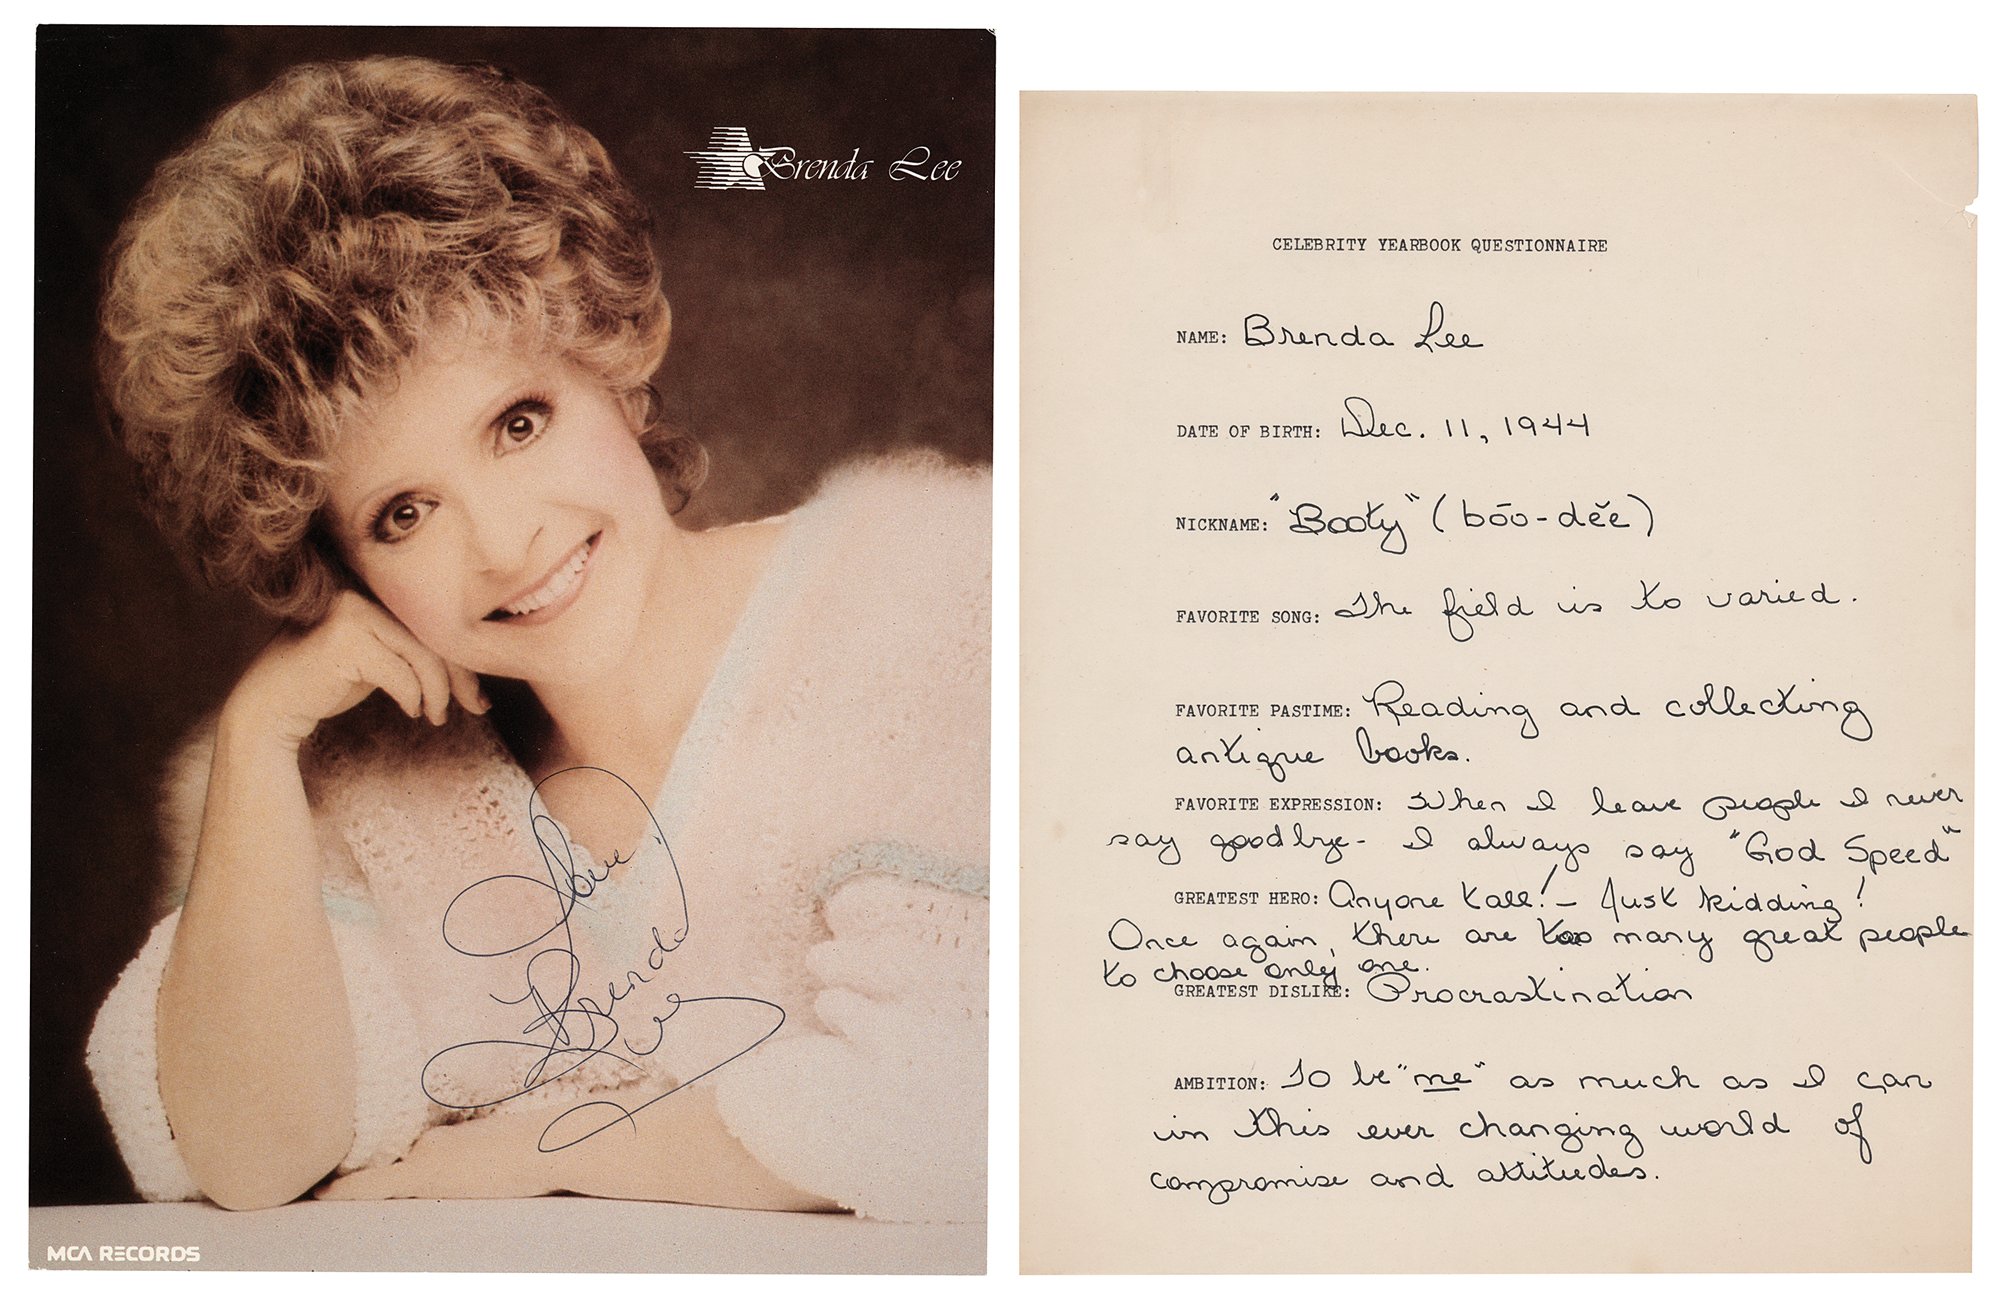 Brenda Lee
Love,
Brenda
Lee
MCA RECORDS
CELEBRITY YEARBOOK QUESTIONNAIRE
NAME: Brenda Lee
DATE OF BIRTH: Dec. 11, 1944
NICKNAME: "Booty" (bōō-dĕe)
FAVORITE SONG: The field is to varied.
FAVORITE PASTIME: Reading and collecting
antique books.
FAVORITE EXPRESSION: When I leave people I never
say goodbye- I always say "God Speed"
GREATEST HERO: Anyone tall! - Just kidding!
Once again, there are too many great people
to choose only one.
GREATEST DISLIKE: Procrastination
AMBITION: To be "me" as much as I can
in this ever changing world of
compromise and attitudes.